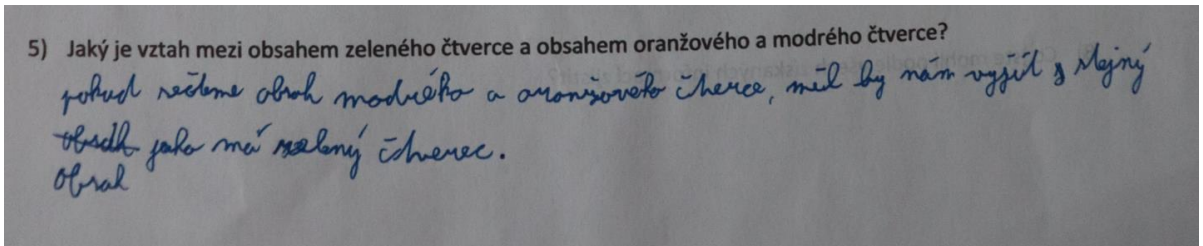 5) Jaký je vztah mezi obsahem zeleného čtverce a obsahem oranžového a modrého čtverce?
pokud sečteme obsah modrého a oranžového čtverce, měl by nám vyjít stejný
obsah jako má zelený čtverec.
Obsah